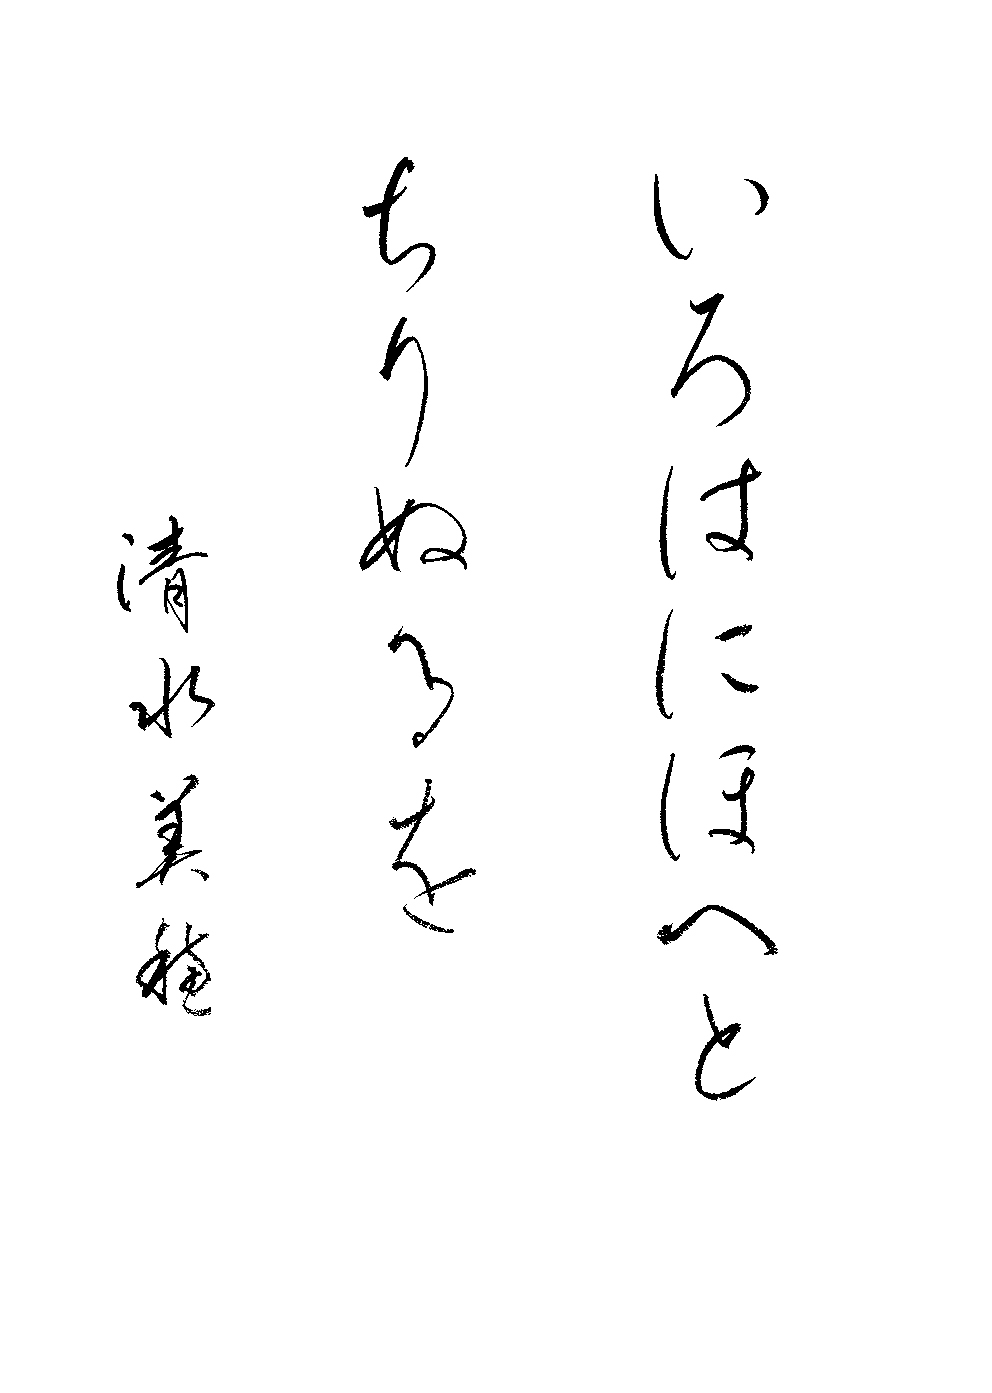 いろはにほへと
ちりぬるを
清水美穂